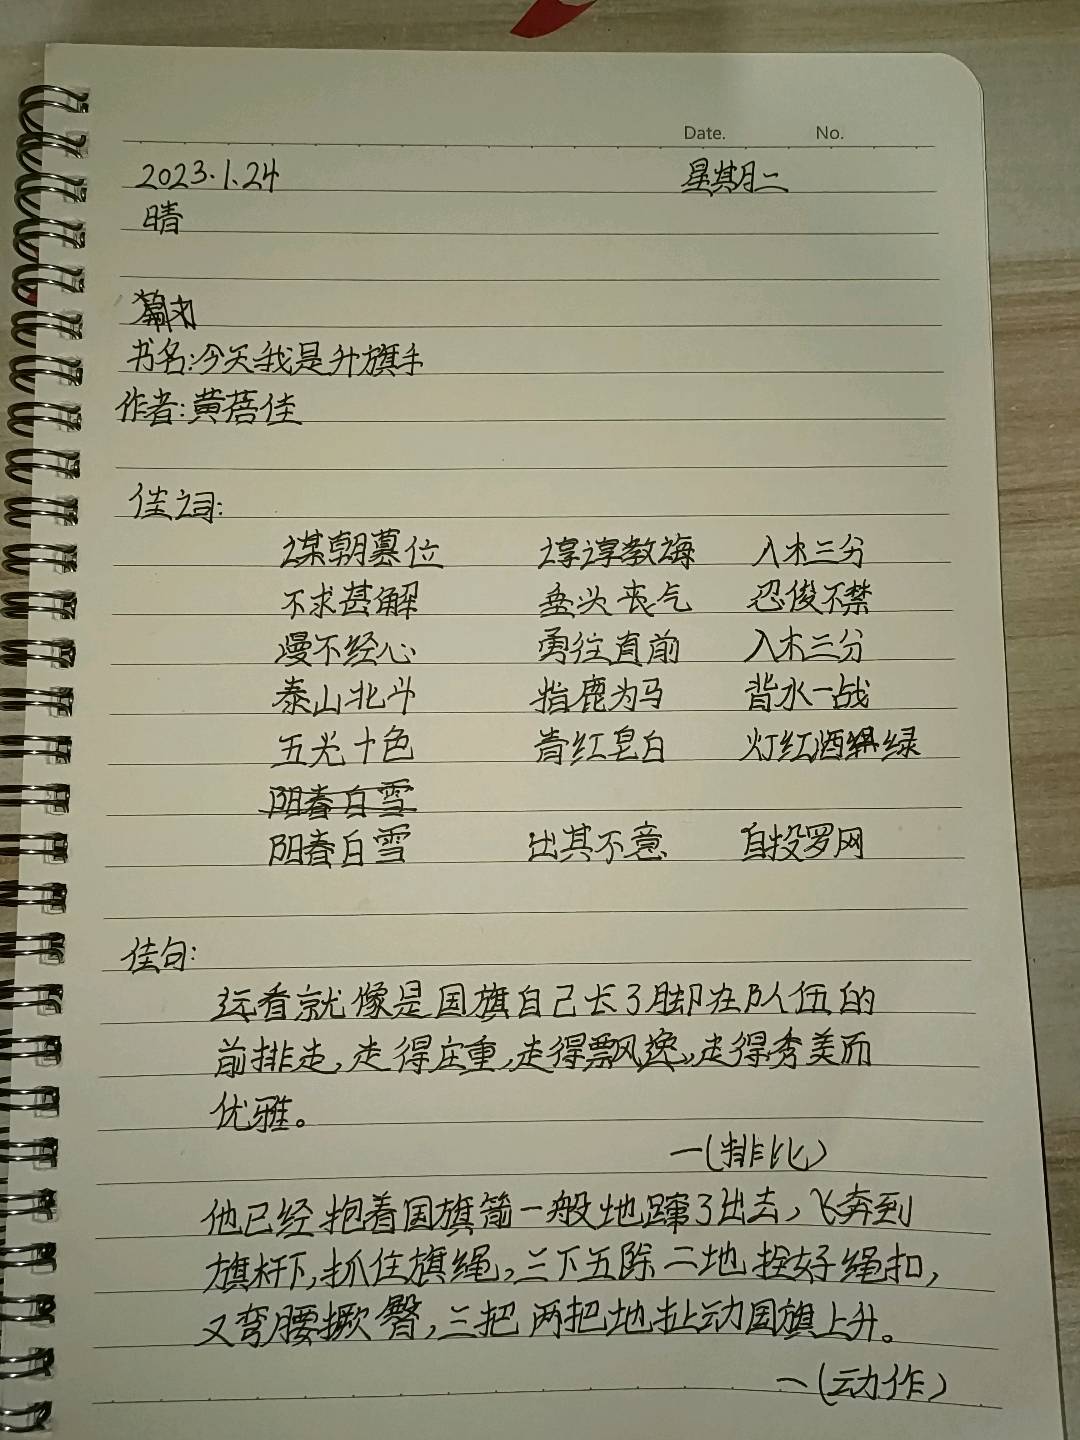 Date. No.
2023.1.24 星期二
晴
书名:今天我是升旗手
作者:黄蓓佳
佳词:
谋朝墓位 谆谆教诲 入木三分
不求甚解 垂头丧气 忍俊不禁
漫不经心 勇往直前 入木三分
泰山北斗 指鹿为马 背水一战
五光十色 青红皂白 灯红酒绿
阳春白雪
阳春白雪 出其不意 自投罗网
佳句:
远看就像是国旗自己长了脚在队伍的
前排走,走得庄重,走得飘逸,走得秀美而
优雅。
—(排比)
他已经抱着国旗箭一般地蹿了出去,飞奔到
旗杆下,抓住旗绳,三下五除二地拴好绳扣,
又弯腰撅臀,三把两把地扯动国旗上升。
—(动作)